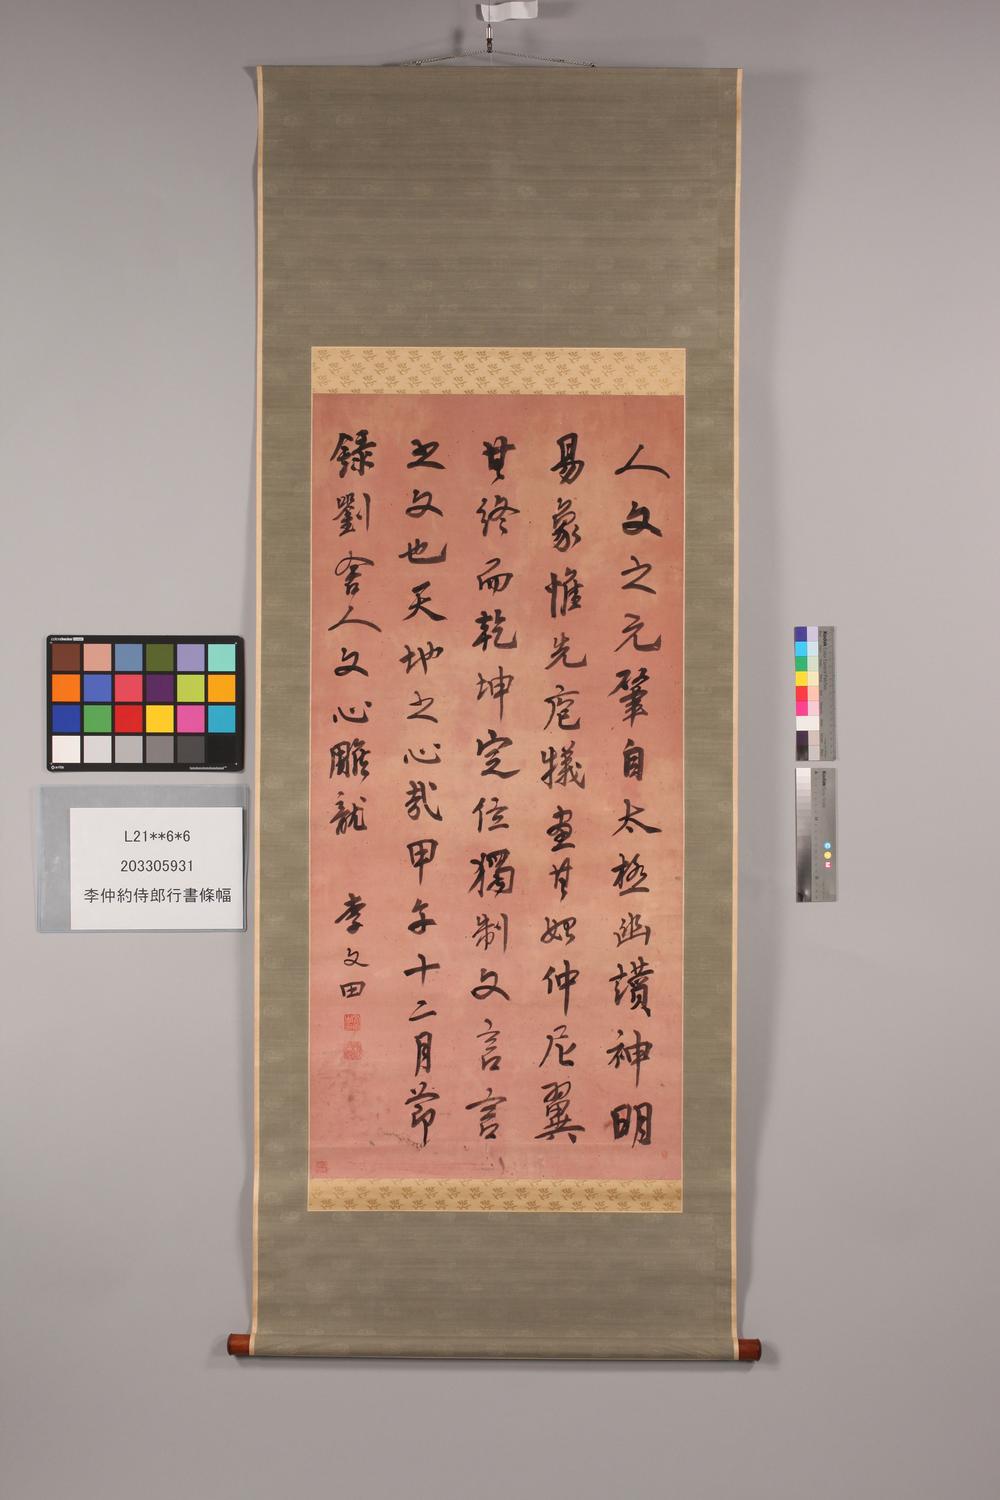 人文之元肇自太極幽讚神明
易象惟先庖犧畫其始仲尼翼
其終而乾坤兩位獨制文言言
之文也天地之心哉甲午十二月節
錄劉舍人文心雕龍
李文田
L21**6*6
203305931
李仲約侍郎行書條幅